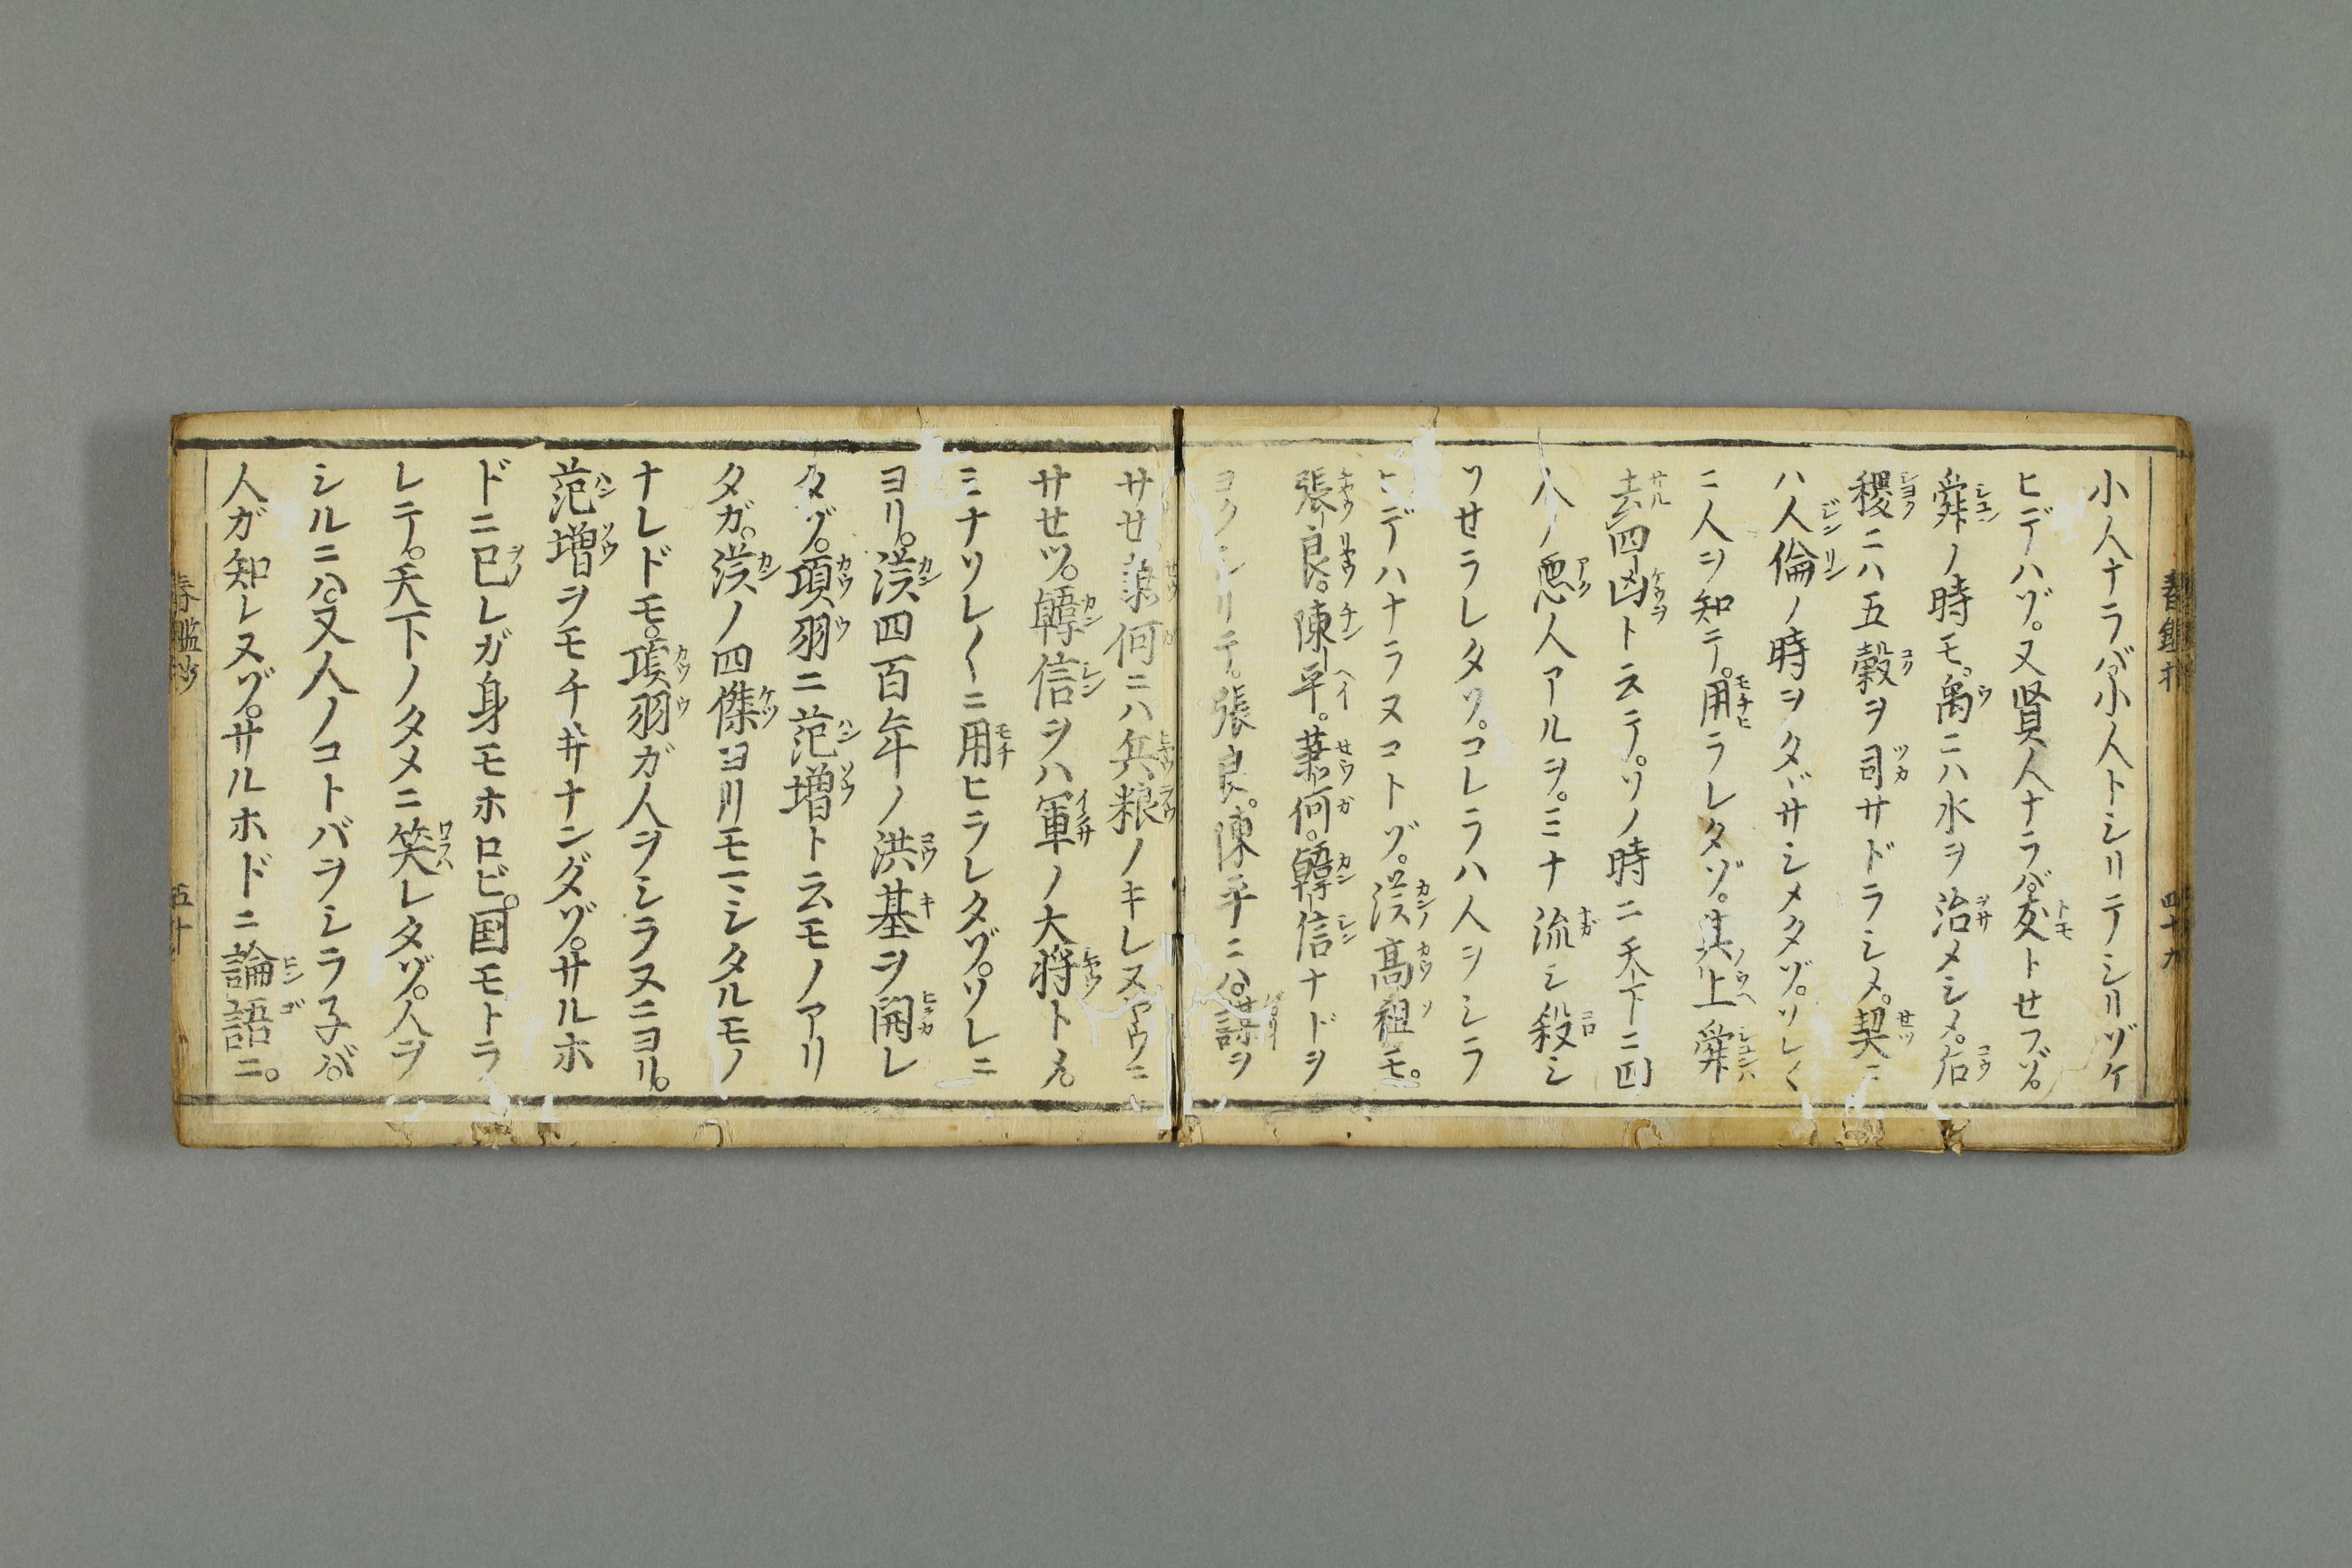 小人ナラバ。小人トシリテシリゾケ
ヒデハゾ。又賢人ナラバ。友トセフゾ。
舜ノ時モ。禹ニハ水ヲ治メシメ。后
稷ニハ五穀ヲ司サドラシメ。契ニ
ハ人倫ノ時ヲタヾサシメタゾ。ソレ〱
ニ人ヲ知テ。用ラレタゾ。其上舜
去四凶トステ。ソノ時ニ天下ニ四
人ノ悪人アルヲ。ミナ流シ殺シ
ツセラレタソ。コレラハ人ヲシラ
ヒデハナラヌコトゾ。漢高祖モ。
張良。陳平。蕭何。韓信ナドヲ
ヨクシリテ。張良。陳平ニハ。謀ヲ
サせ。蕭何ニハ兵粮ノキレヌヤウニ
サせツ。韓信ヲハ軍ノ大将トメ。
ミナソレ〱ニ用ヒラレタゾ。ソレニ
ヨリ。漢四百年ノ洪基ヲ開レ
タゾ。項羽ニ范増ト云モノアリ
タガ。漢ノ四傑ヨリモマシタルモノ
ナレドモ。項羽ガ人ヲシラヌニヨリ。
范増ヲモチ井ナンダゾ。サルホ
ドニ已レガ身モホロビ。国モトラ
レテ。天下ノタメニ笑レタゾ。人ヲ
シルニハ。又人ノコトバヲシラ子バ。
人ガ知レヌゾ。サルホドニ論語ニ。
春鑑抄
四十九
春鑑抄
五十